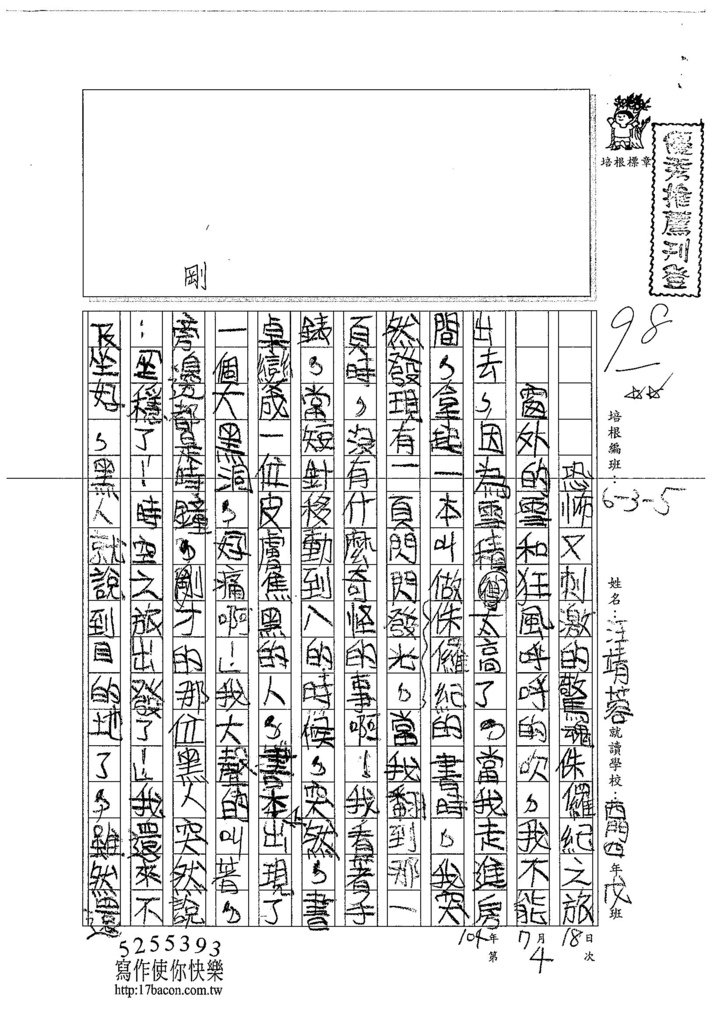 培根標章
優秀推薦刊登
98
培根編班：6-3-5
姓名：汪靖蓉
就讀學校：西門四年戊班
104年7月18日
第4次
恐怖又刺激的驚魂侏儸紀之旅
窗外的雪和狂風呼呼的吹，我不能
出去，因為雪積太高了。當我走進房
間，拿起一本叫做侏儸紀的書時，我突
然發現有一頁閃閃發光，當我翻到那一
頁時，沒有什麼奇怪的事啊！我看著手
錶，當短針移動到八的時候，突然，書
桌變成一位皮膚焦黑的人，書本上出現了
一個大黑洞，好痛啊！我大聲的叫著，
旁邊都是時鐘，剛才的那位黑人突然說
：「坐穩了！時空之旅出發了！」我還來不
及坐好，黑人就說到目的地了，雖然還
剛
5255393
寫作使你快樂
http:17bacon.com.tw